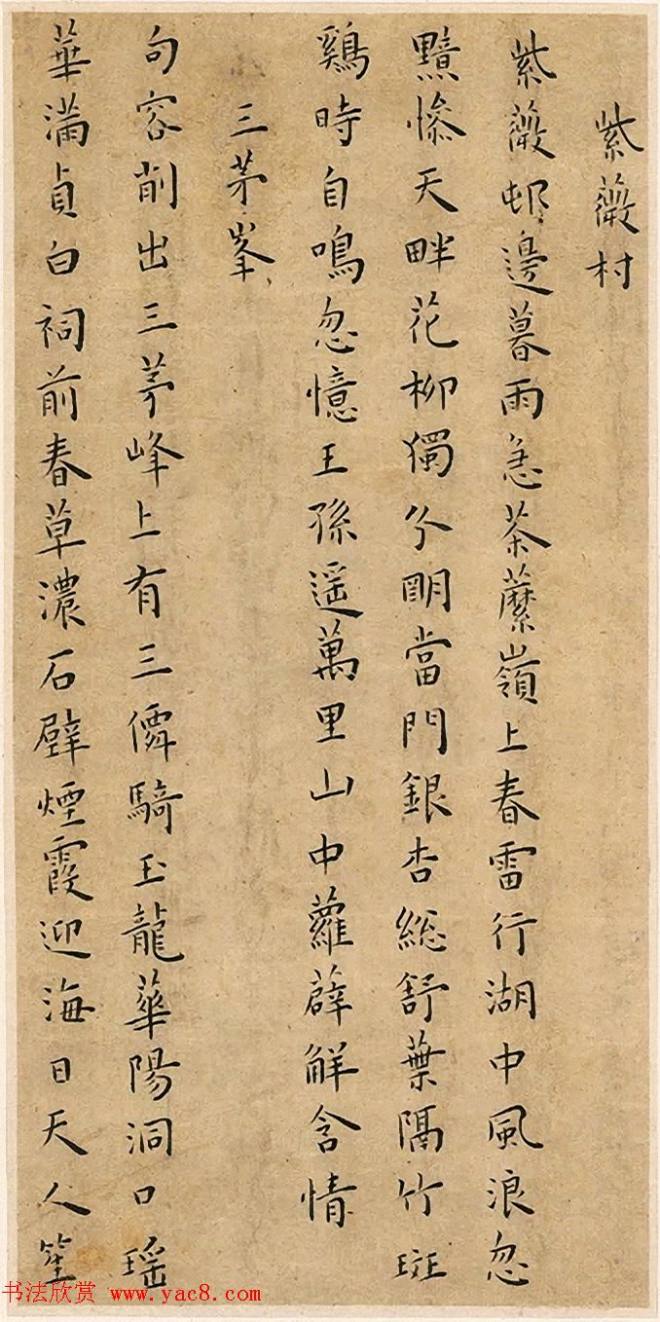 紫薇村
紫薇邨邊暮雨急茶䕷嶺上春雷行湖中風浪忽
黯慘天畔花柳獨分朙當門銀杏總舒葉隔竹斑
鷄時自鳴忽憶王孫遥萬里山中蘿薜解含情
三茅峯
句容削出三茅峰上有三僊騎玉龍華陽洞口瑶
華滿貞白祠前春草濃石壁煙霞迎海日天人笙
书法欣赏 www.yac8.com